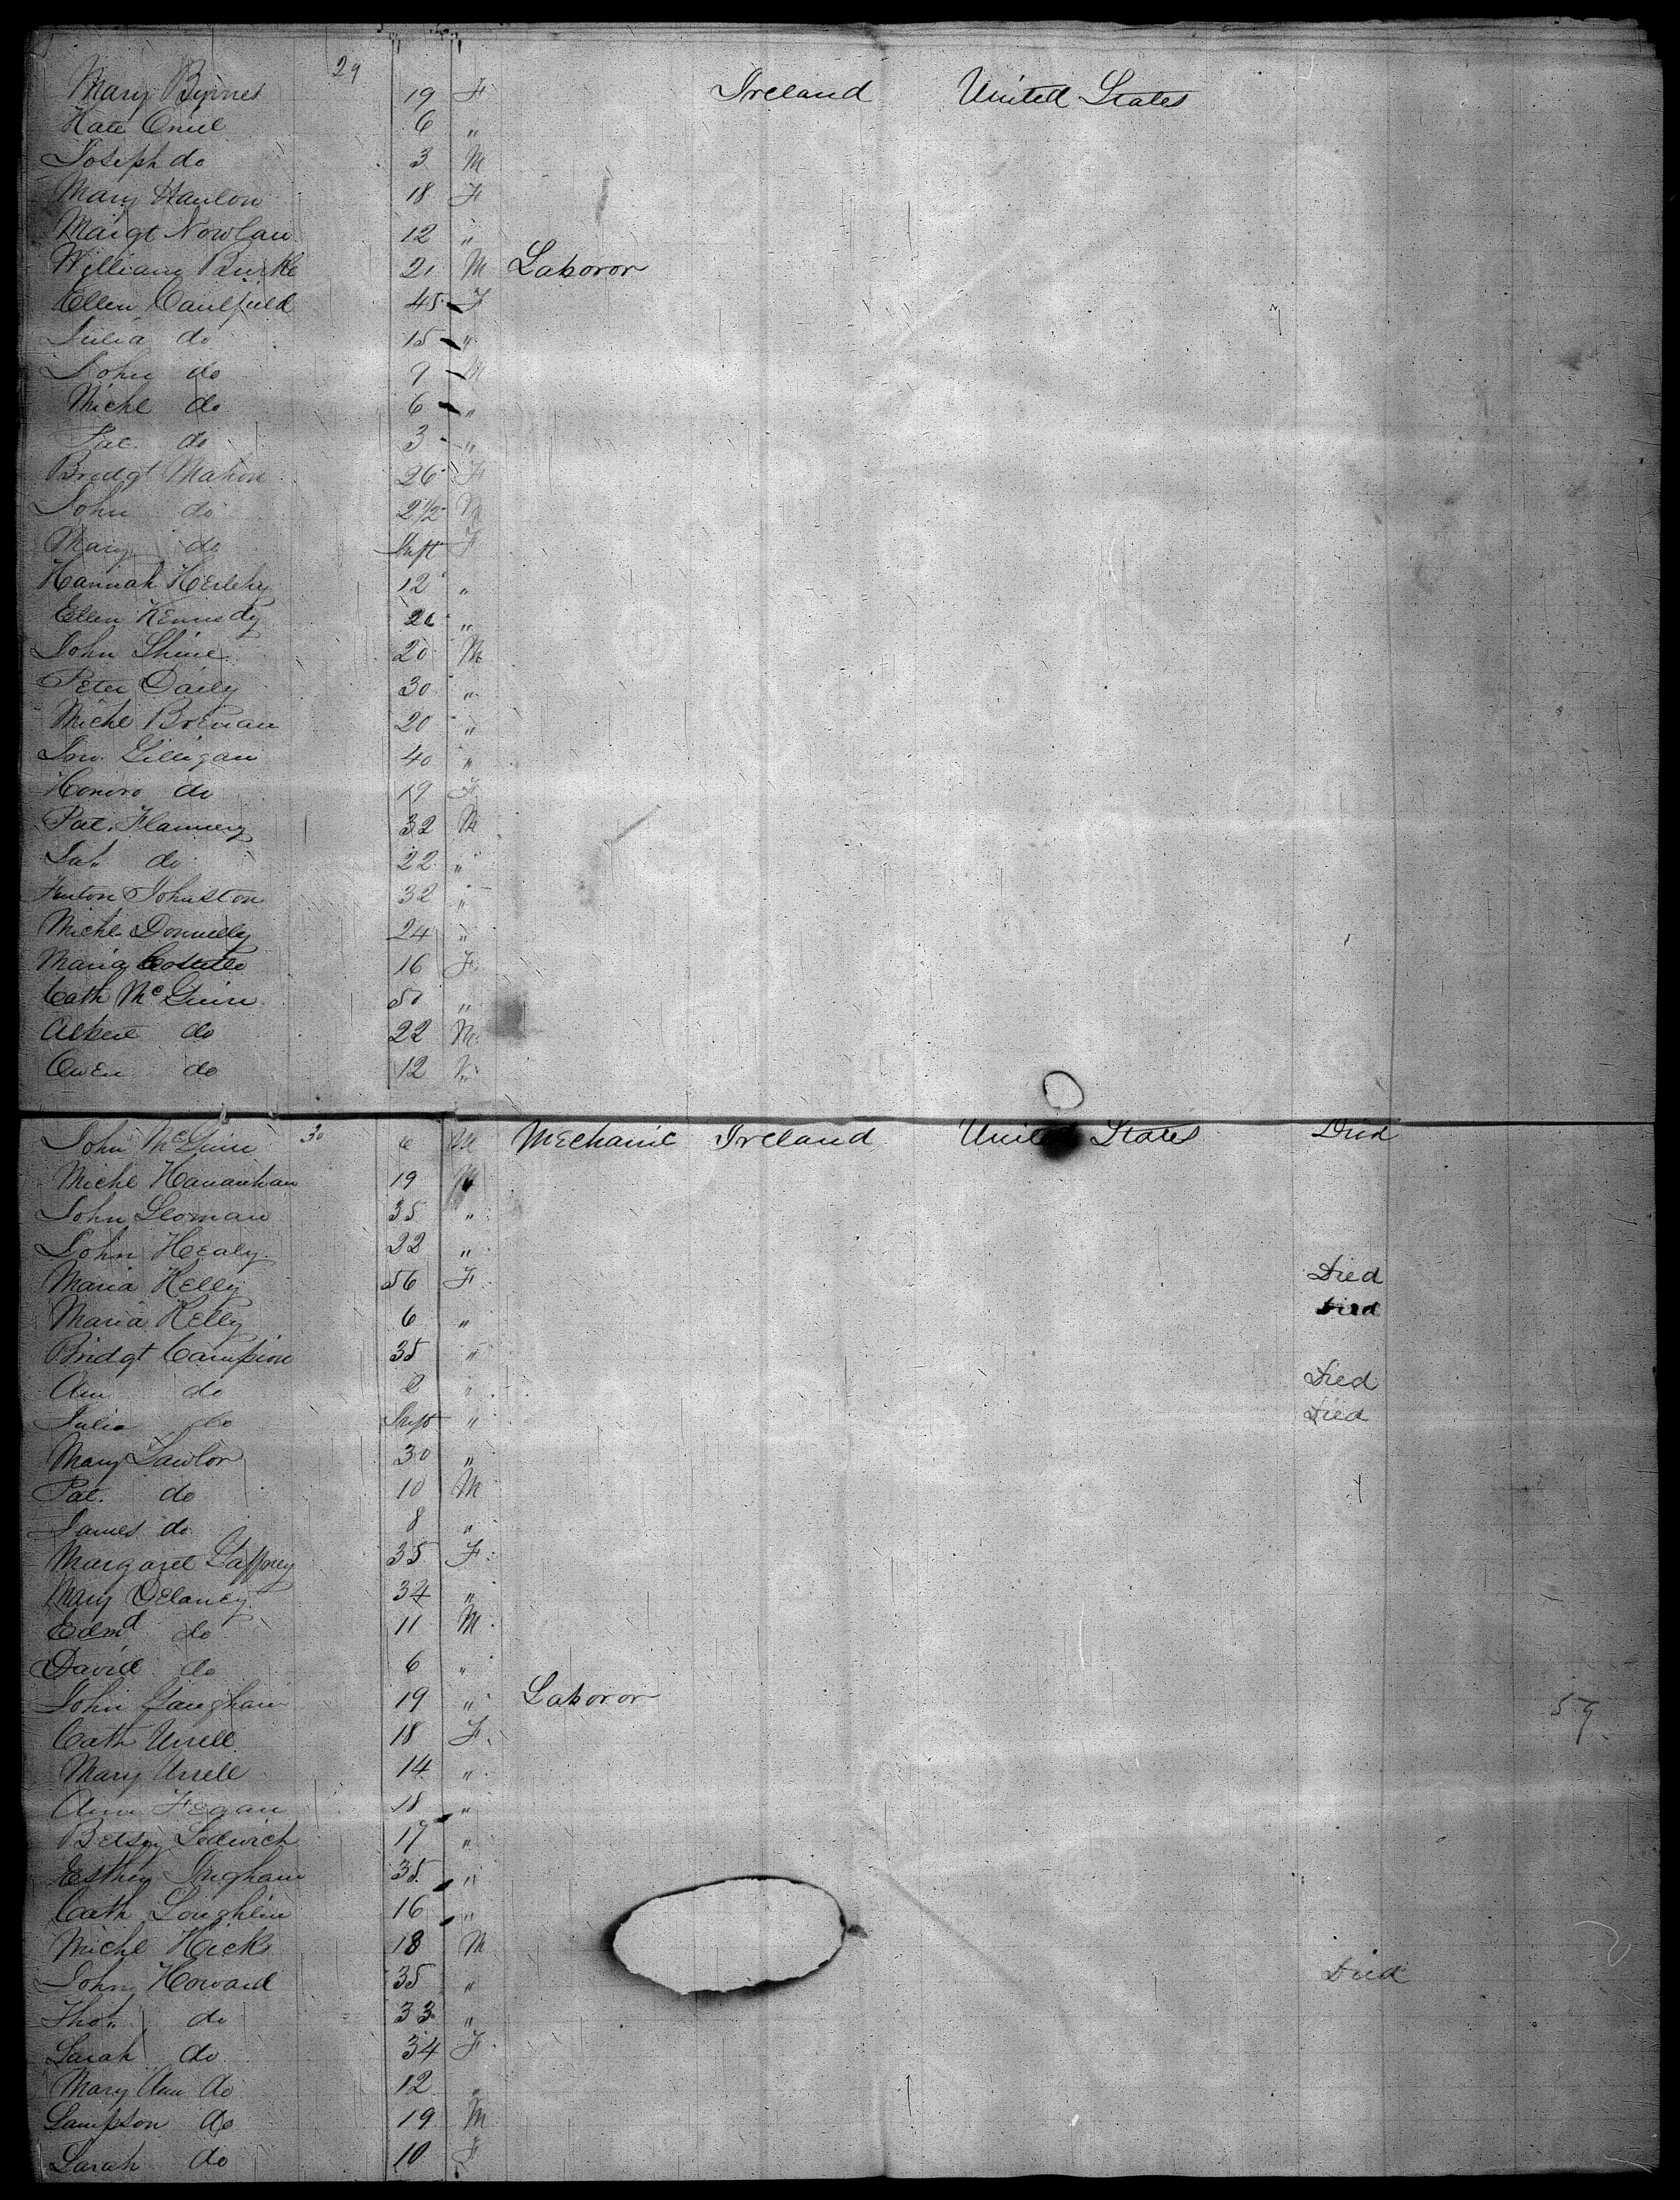 29
Mary Byrnes 19 F Ireland United States
Kate Oneil 6 "
Joseph do 3 M
Mary Hanlon 18 F
Margt Nowlan 12 "
William Burke 21 M Laboror
Ellen Caulfield 45 F
Julia do 15 "
John do 9 M
Michl do 6 "
Pat. do 3 "
Bridgt Mahon 26 F
John do 2 1/2 M
Mary do Inft F
Hannah Herlehy 12 "
Ellen Kennedy "
John Shine 20 M
Peter Daily 30 "
Michl Brenan 20 "
Gilligan 40 "
Honoro do 19 F
Pat. Flannery 32 M
do 22 "
Fenton Johnston 32 "
Michl Donnelly 24 "
Maria Costello 16 F
Cath McGuire 50 "
Albert do 22 M
Owen do 12
30
John McGuire 6 M Mechanic Ireland United States Died
Michl Hananhan 19
John Sloman 35 "
John Healy 22 "
Maria Kelly 56 F Died
Maria Kelly 6 " Died
Bridgt Campion 35 "
Ann do " Died
Julia do Inft " Died
Mary Lawlor 30 "
Pat. do 10 M
James do 8 "
Margaret Gaffney 35 F
Mary Delaney 34 "
Edmd do 11 M
David do 6 "
John Gaughan 19 " Laboror
59
Cath Urrell 18 F
Mary Urrell 14 "
Ann Fegan 18 "
Betsy Ledwich 17 "
Esther Ingham 35 "
Cath Loughlin 16 "
Michl Hicks 18 M
John Howard 35 " Died
Thos. do 33 "
Sarah do 34 F
Mary Ann do 12 "
Sampson do 19 M
Sarah do 10 F